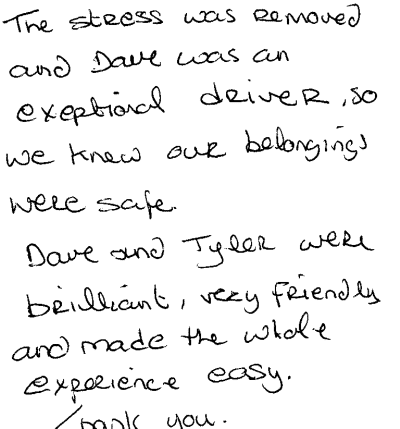 The stress was removed
and Dave was an
exeptional driver, so
we knew our belongings
were safe.
Dave and Tyler were
brilliant, very friendly
and made the whole
experience easy.
Thank you.